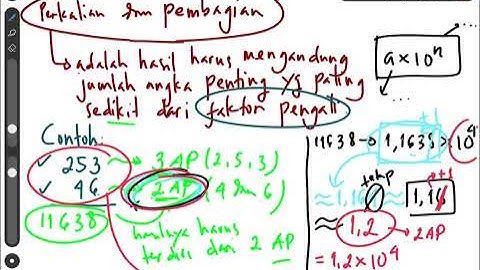 Perkalian dan pembagian
adalah hasil harus mengandung
jumlah angka penting yg paling
sedikit dari faktor pengali
a × 10ⁿ
Contoh:
✓ 253 → 3 AP (2, 5, 3)
✓ 46 → 2 AP (4 dan 6)
11638
hasilnya harus
terdiri dari 2 AP
11638 → 1,1638 × 10⁴
+1
≈ 1,16
tetap
≈ 1,16
+1
≈ 1,2 → 2 AP
= 1,2 × 10⁴